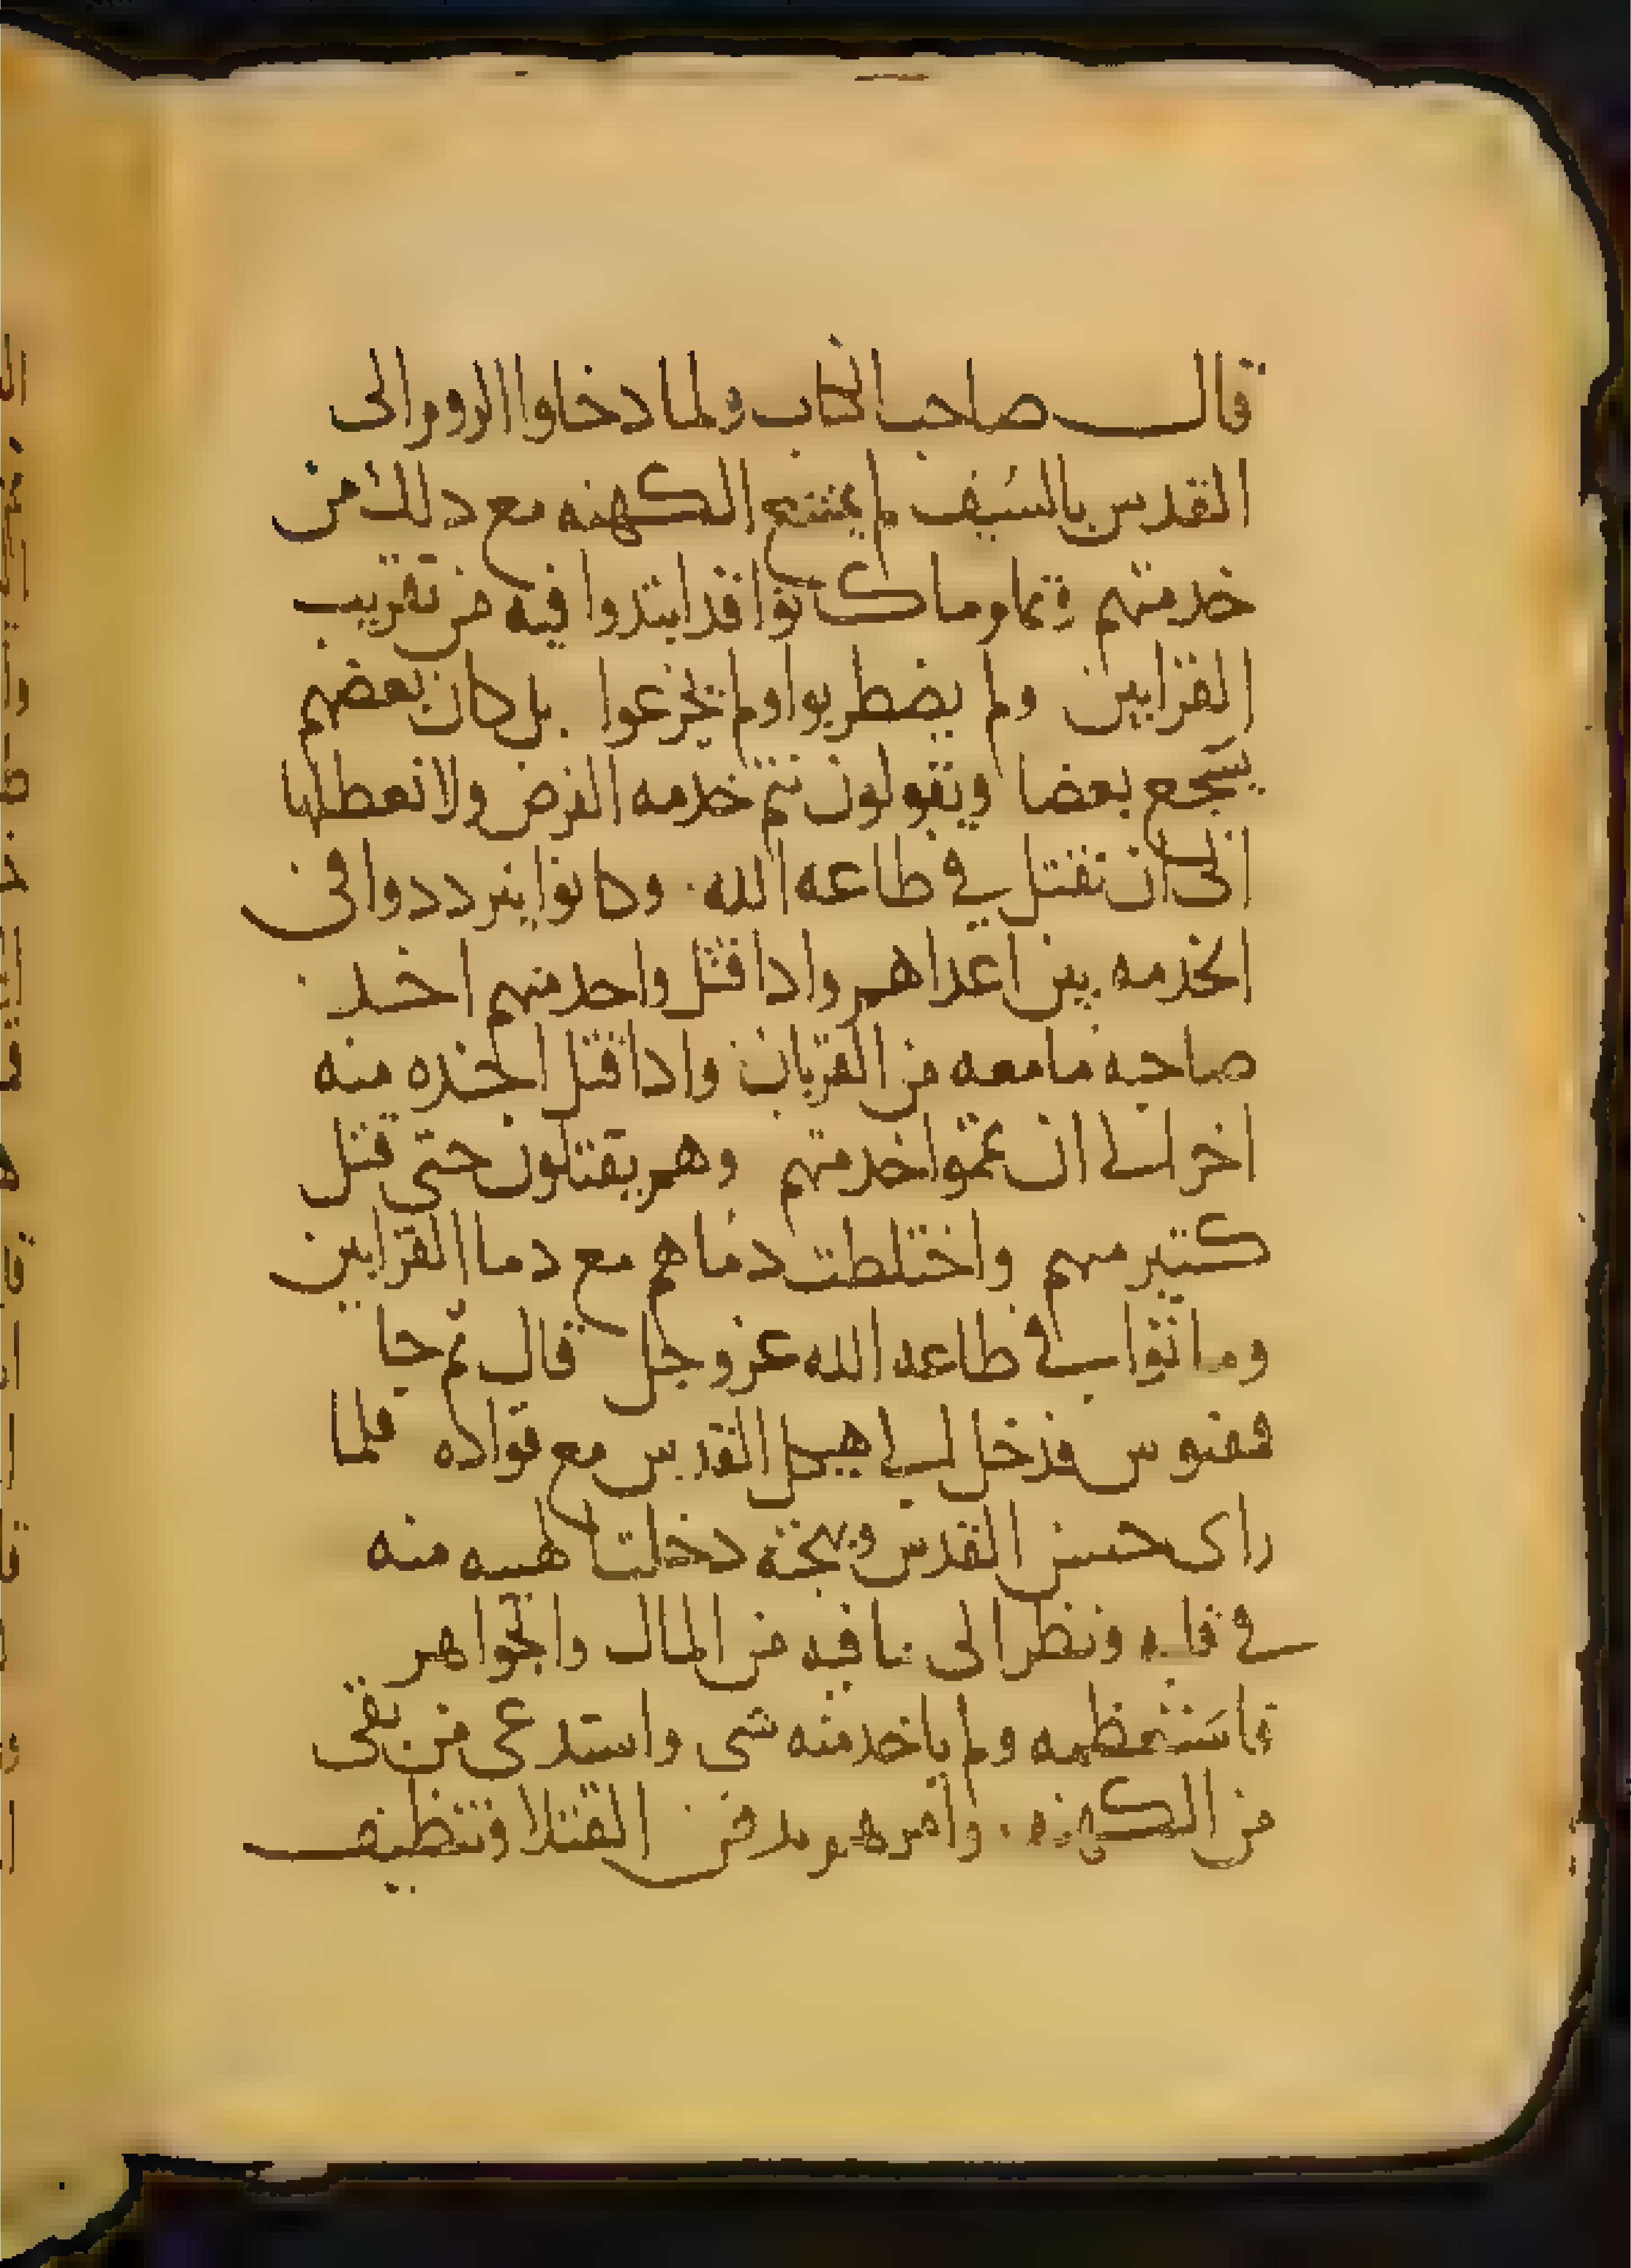 قال صاحب الكتاب ولما دخلوا الروم الى
القدس بالسيف لم يمتنع الكهنه مع دلك من
خدمتهم وتمام وما كانوا قد ابتدوا فيه من تقريب
القرابين ولم يضطربوا ولم يجزعوا بل كان بعضهم
يشجع بعضا ويقولون نتم خدمه الفرض ولا نعطلها
الى ان نقتل في طاعه الله وكانوا يترددوا في
الخدمه بين اعداهم وادا قتل واحد منهم اخد
صاحبه ما معه من القربان وادا قتل اخده منه
اخر الى ان تمموا خدمتهم وهم يقتلون حتى قتل
كتير منهم واختلطت دماهم مع دما القرابين
وماتوا في طاعه الله عز وجل قال تم جا
ففنوس فدخل الى هيكل القدس مع قواده فلما
راى حسن القدس وبهجته دخلت هيبه منه
في قلبه ونظر الى ما فيه من المال والجواهر
فاستعظمه ولم ياخد منه شى واستدعى من بقى
من الكهنه وامرهم بدفن القتلا وتنظيف